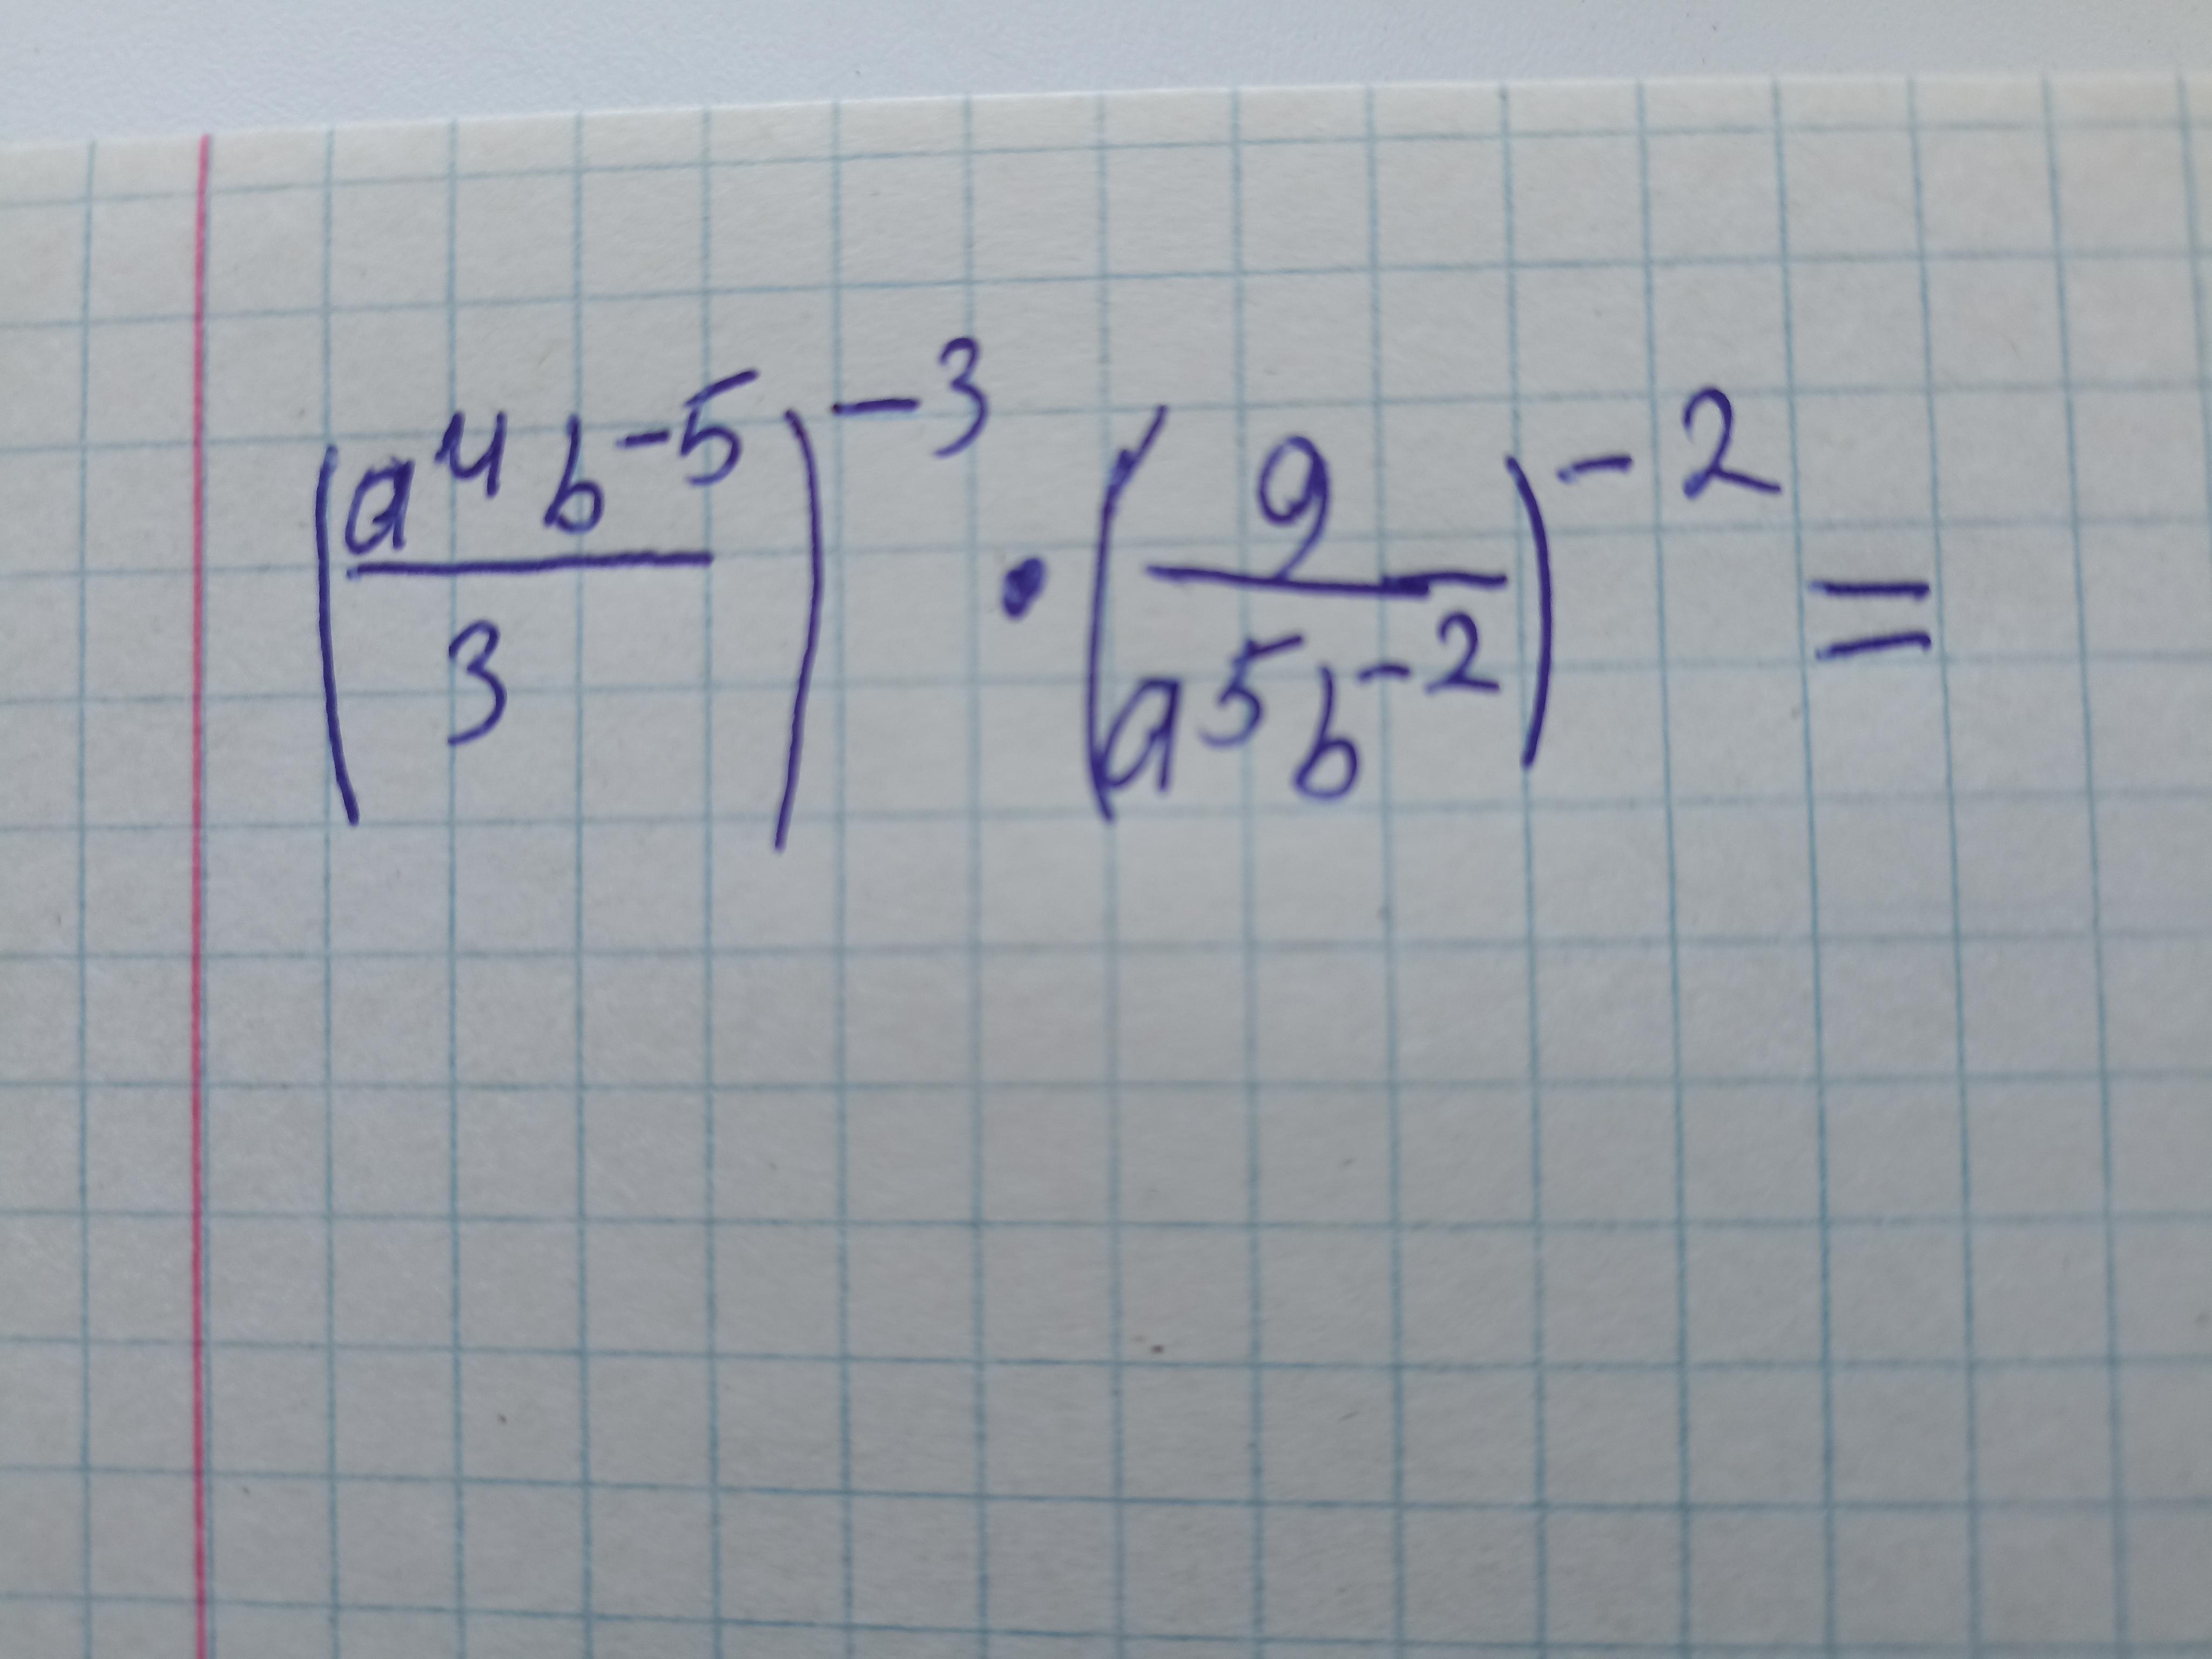 (a⁴b⁻⁵/3)⁻³ · (9/a⁵b⁻²)⁻² =